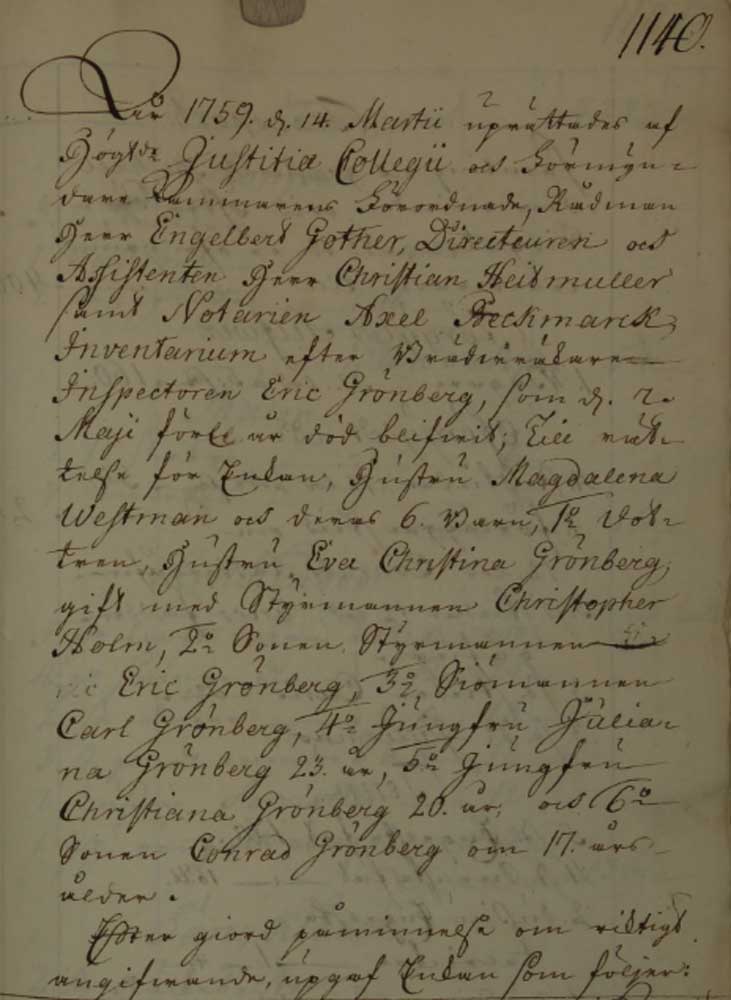 1140.
Åhr 1759. d. 14. Martii uprättades af
Högtde Justitiæ Collegii och Förmyn-
dare Cammarens Förordnade, Rådman
Herr Engelbert Gother, Directeuren och
Assistenten Herr Christian Heidmuller
samt Notarien Axel Beckmarck,
Inventarium efter
Inspectoren Eric Grönberg, som d. 2.
Maji förl: år död blifwit; Till rät-
telse för Enkan, Hustru Magdalena
Westman och deras 6. Barn, 1o Dot-
tren, Hustru Eva Christina Grönberg,
gift med Styrmannen Christopher
Holm, 2o Sonen Styrmannen
Eric Grönberg, 3o Siömannen
Carl Grönberg, 4o Jungfru Julia-
na Grönberg 23. år, 5o Jungfru
Christiana Grönberg 20. år, och 6o
Sonen Conrad Grönberg om 17. års
ålder.
Efter giord påminnelse om riktigt
angifwande, upgaf Enkan som följer: